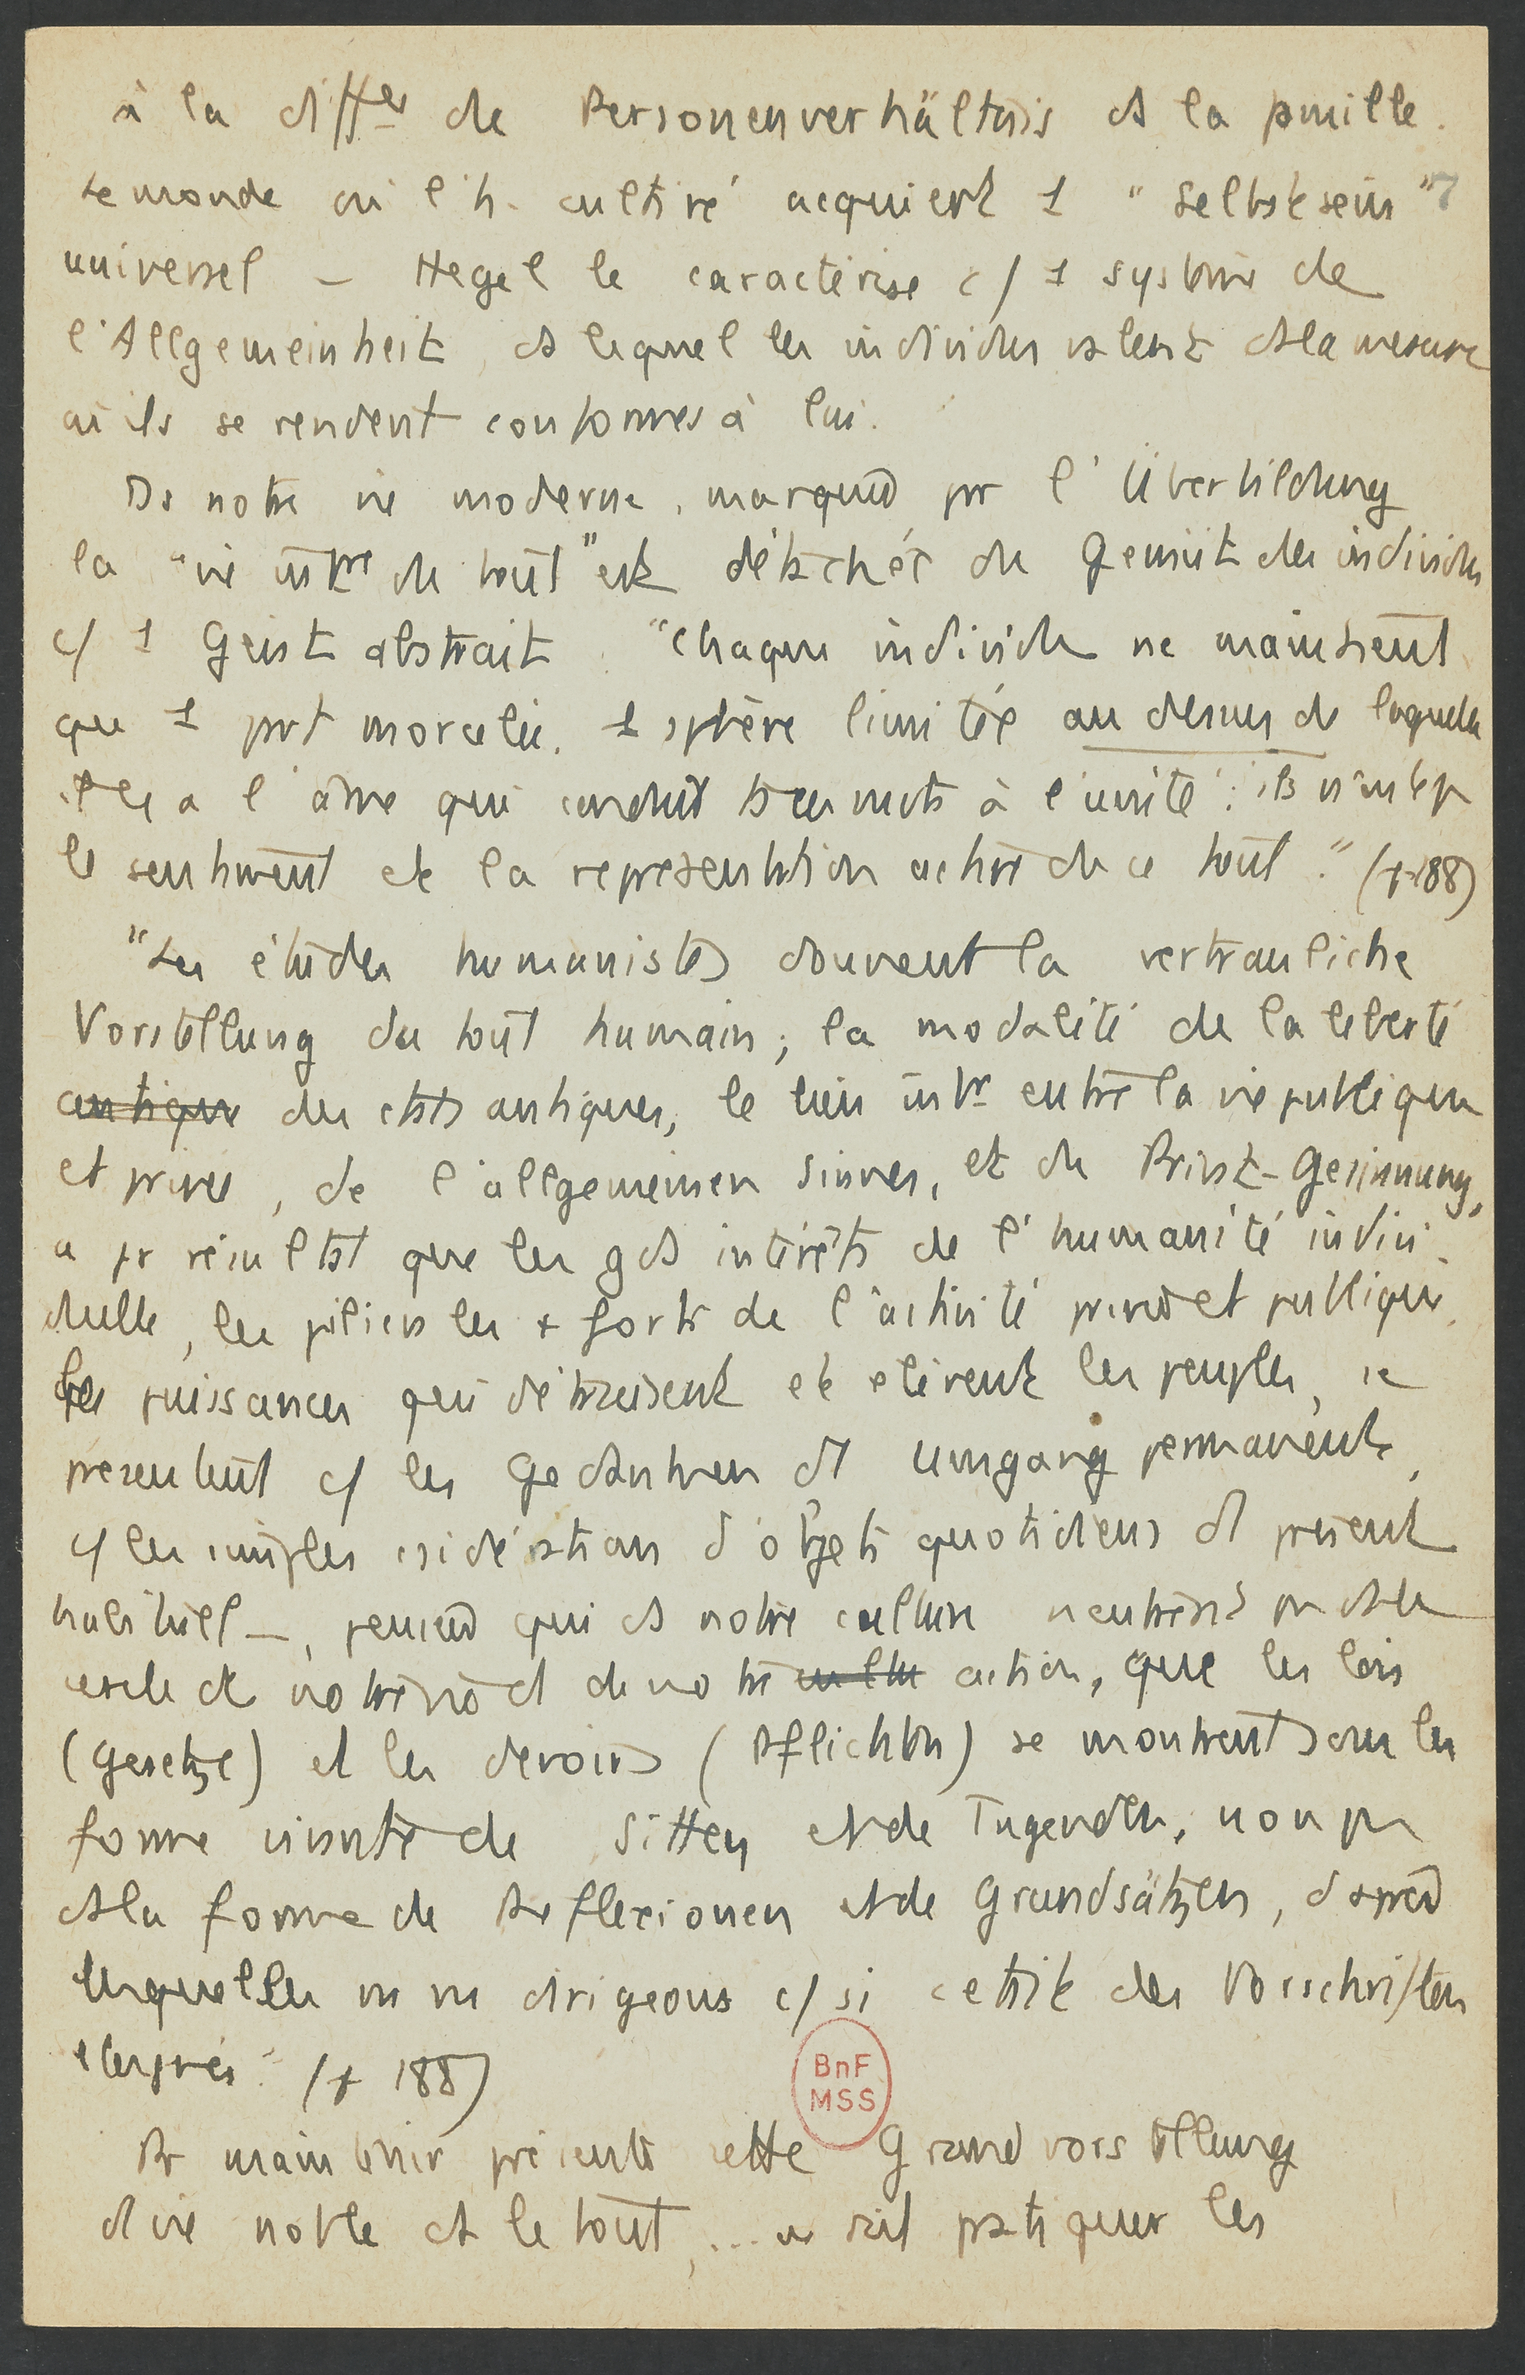 à la différ de Personenverhältnis ds la famille.
Le monde où l'h. cultivé acquiert 1 "Selbstsein" 7
universel – Hegel le caractérise c/ 1 système de
l'Allgemeinheit, ds lequel les individus valent ds la mesure
où ils se rendent conformes à lui.
Ds notre vie moderne, marquée pr l'Überbildung
la "vie intre du tout" est détachée du Gemüt des individus
c/ 1 Geist abstrait. "Chaque individu ne maintient
que 1 part morcelée, 1 sphère limitée au dessus de laquelle
il y a l'âme qui conduit ts ces mvts à l'unité; ils n'ont pas
le sentiment et la représentation active de ce tout." (p 188)
"Les études humanistes donnent la vertrauliche
Vorstellung du tout humain; la modalité de la liberté
antique des états antiques, le lien intr entre la vie publique
et privée, de l'allgemeinen Sinnes, et du Privat-Gesinnung,
a pr résultat que les gds intérêts de l'humanité indivi-
duelle, les piliers les + forts de l'activité privée et publique,
les puissances qui détruisent et élèvent les peuples, se
présentent c/ les Gedanken d'1 Umgang permanent,
c/ les simples considérations d'objets quotidiens d'1 présent
habituel –, pensées qui ds notre culture n'entrent pas ds le
cercle de notre vie et de notre culture action, que les lois
(Gesetze) et les devoirs (Pflichten) se montrent sous la
forme vivante de Sitten et de Tugenden, non pas
ds la forme de Reflexionen et de Grundsätzen, d'après
lesquelles ns ns dirigeons c/ si c'était des Vorschriften
(p 188)
Pr maintenir présente cette Grundvorstellung
d'1 vie noble ds le tout, ... il faut pratiquer les
BnF
MSS